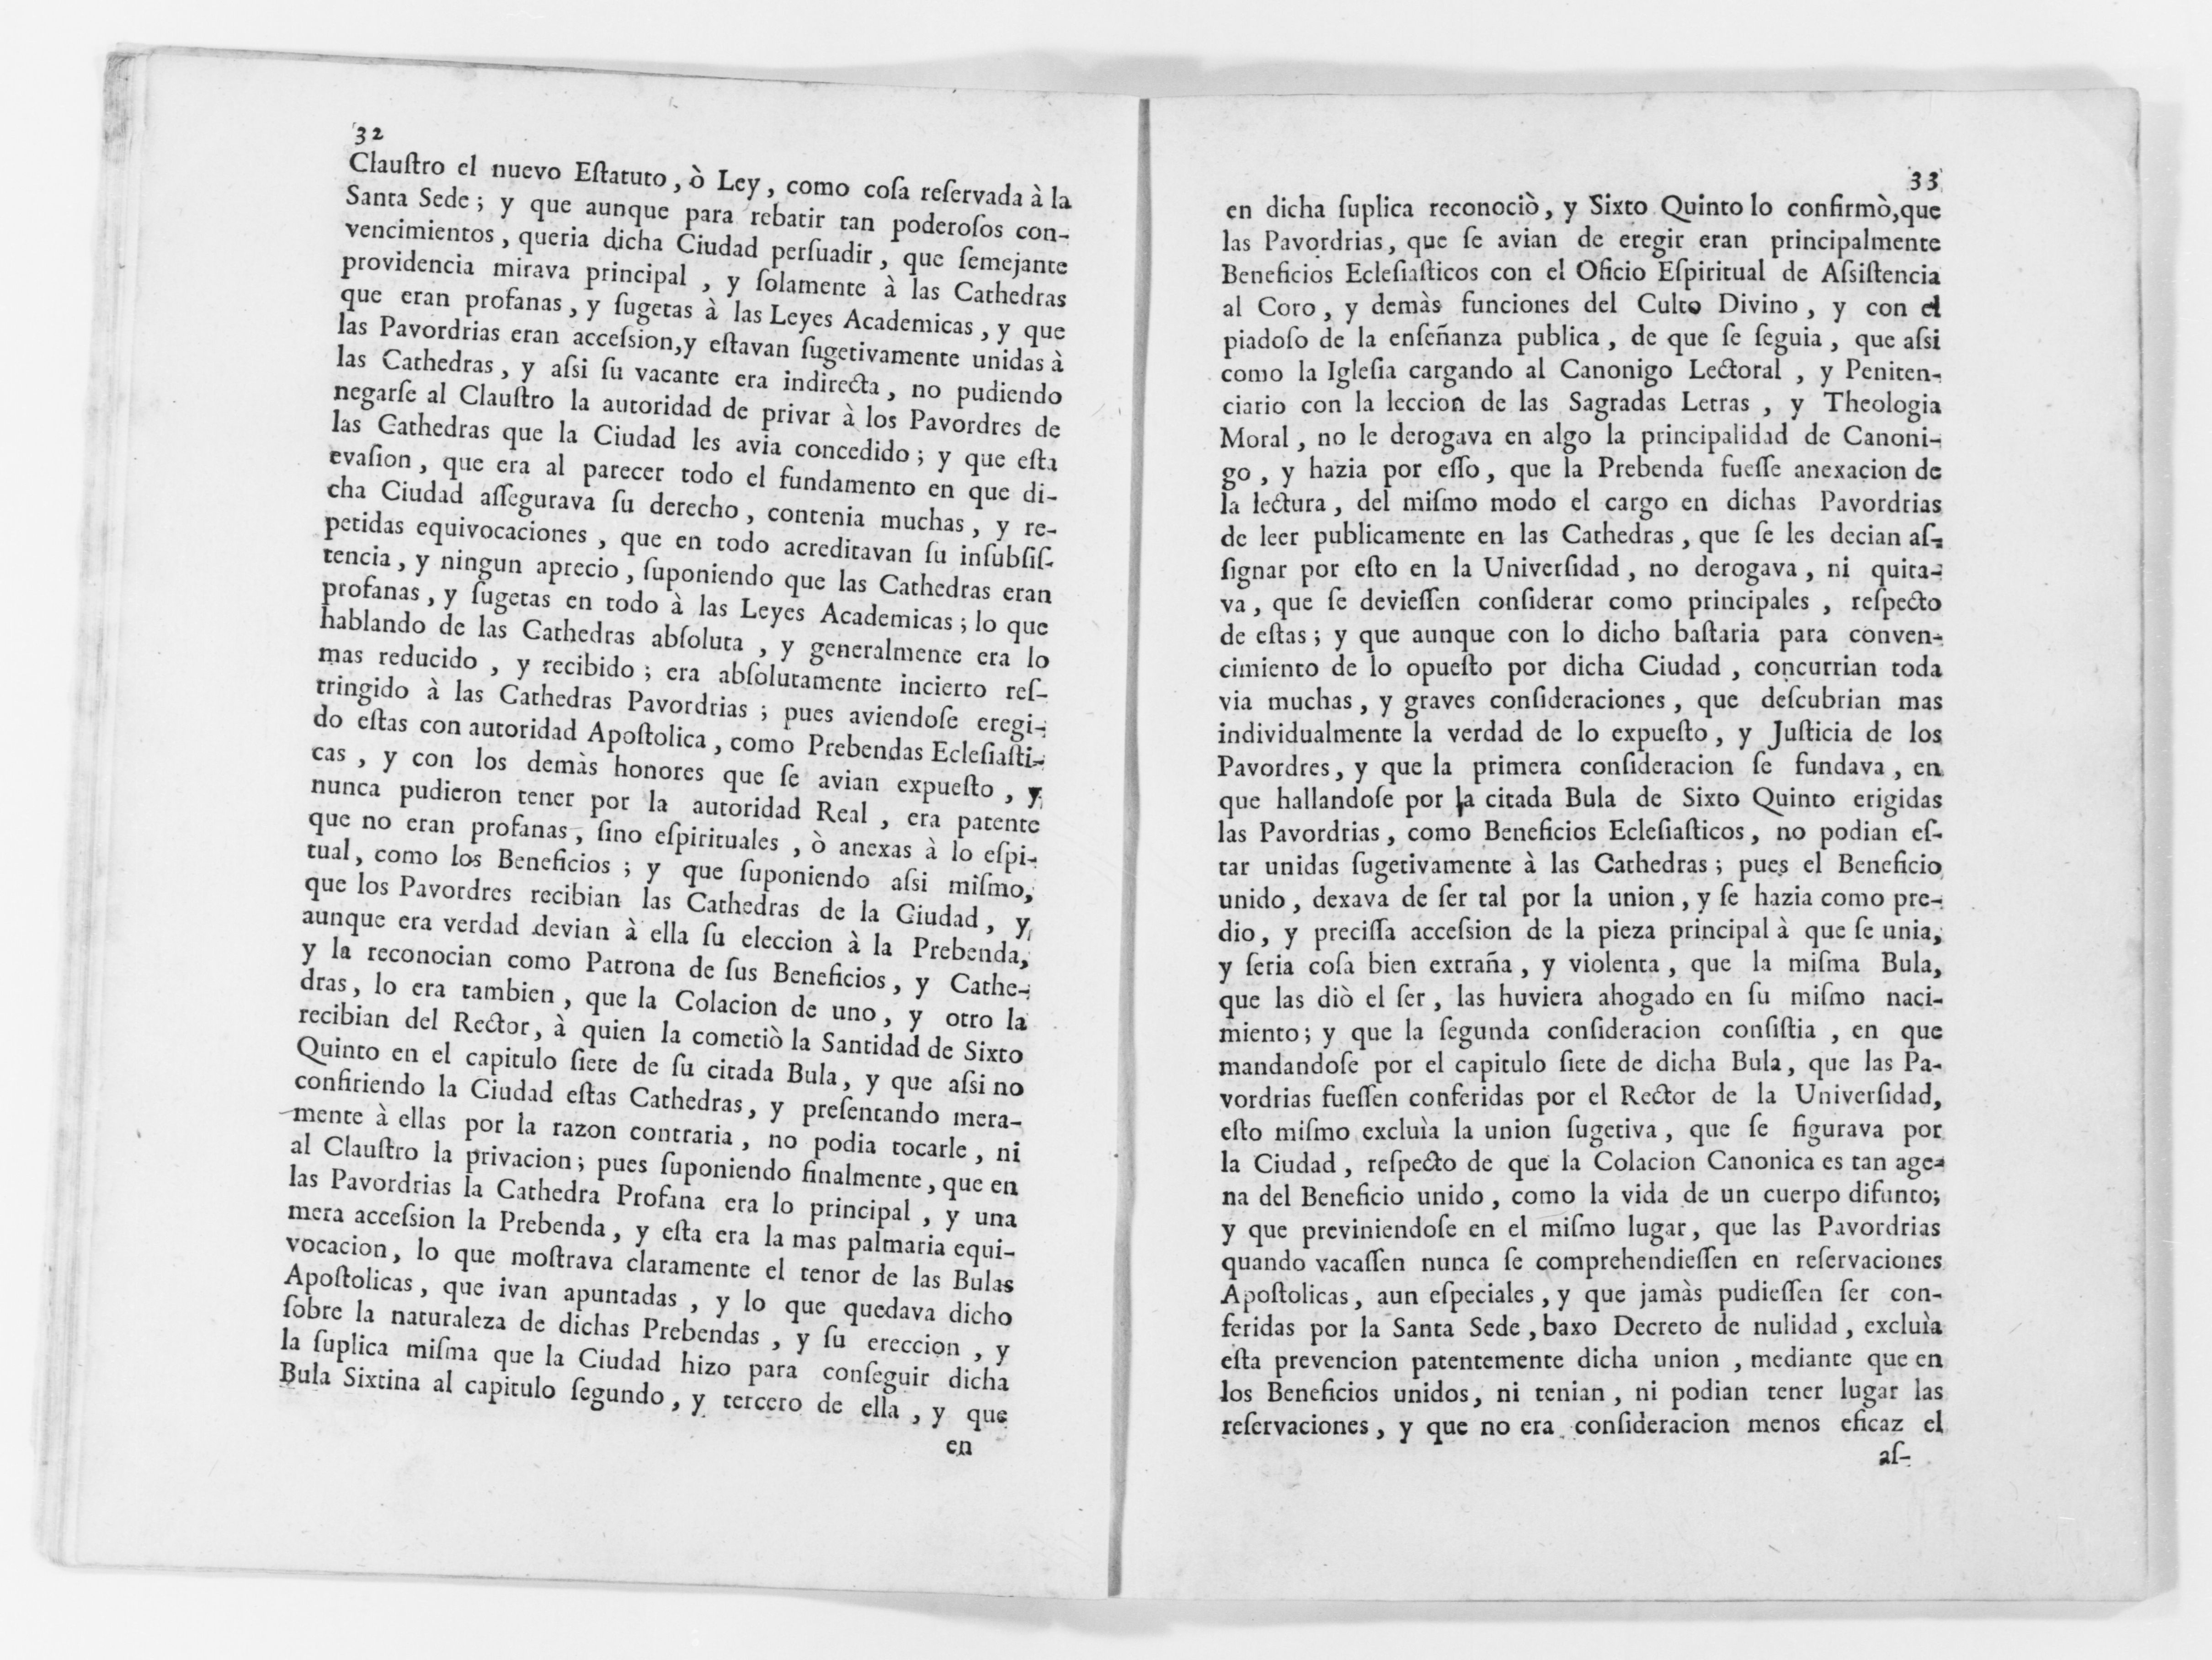 32
Clauſtro el nuevo Eſtatuto, ò Ley, como coſa reſervada à la
Santa Sede; y que aunque para rebatir tan poderoſos con-
vencimientos, queria dicha Ciudad perſuadir, que ſemejante
providencia mirava principal, y ſolamente à las Cathedras
que eran profanas, y ſugetas à las Leyes Academicas, y que
las Pavordrias eran acceſsion,y eſtavan ſugetivamente unidas à
las Cathedras, y aſsi ſu vacante era indirecta, no pudiendo
negarſe al Clauſtro la autoridad de privar à los Pavordres de
las Cathedras que la Ciudad les avia concedido; y que eſta
evaſion, que era al parecer todo el fundamento en que di-
cha Ciudad aſſegurava ſu derecho, contenia muchas, y re-
petidas equivocaciones, que en todo acreditavan ſu inſubſiſ-
tencia, y ningun aprecio, ſuponiendo que las Cathedras eran
profanas, y ſugetas en todo à las Leyes Academicas; lo que
hablando de las Cathedras abſoluta, y generalmente era lo
mas reducido, y recibido; era abſolutamente incierto reſ-
tringido à las Cathedras Pavordrias; pues aviendoſe eregi-
do eſtas con autoridad Apoſtolica, como Prebendas Ecleſiaſti-
cas, y con los demàs honores que ſe avian expueſto, y
nunca pudieron tener por la autoridad Real, era patente
que no eran profanas, ſino eſpirituales, ò anexas à lo eſpi-
tual, como los Beneficios; y que ſuponiendo aſsi miſmo,
que los Pavordres recibian las Cathedras de la Ciudad, y
aunque era verdad devian à ella ſu eleccion à la Prebenda,
y la reconocian como Patrona de ſus Beneficios, y Cathe-
dras, lo era tambien, que la Colacion de uno, y otro la
recibian del Rector, à quien la cometiò la Santidad de Sixto
Quinto en el capitulo ſiete de ſu citada Bula, y que aſsi no
confiriendo la Ciudad eſtas Cathedras, y preſentando mera-
mente à ellas por la razon contraria, no podia tocarle, ni
al Clauſtro la privacion; pues ſuponiendo finalmente, que en
las Pavordrias la Cathedra Profana era lo principal, y una
mera acceſsion la Prebenda, y eſta era la mas palmaria equi-
vocacion, lo que moſtrava claramente el tenor de las Bulas
Apoſtolicas, que ivan apuntadas, y lo que quedava dicho
ſobre la naturaleza de dichas Prebendas, y ſu ereccion, y
la ſuplica miſma que la Ciudad hizo para conſeguir dicha
Bula Sixtina al capitulo ſegundo, y tercero de ella, y que
en
33
en dicha ſuplica reconociò, y Sixto Quinto lo confirmò,que
las Pavordrias, que ſe avian de eregir eran principalmente
Beneficios Ecleſiaſticos con el Oficio Eſpiritual de Aſsiſtencia
al Coro, y demàs funciones del Culto Divino, y con el
piadoſo de la enſeñanza publica, de que ſe ſeguia, que aſsi
como la Igleſia cargando al Canonigo Lectoral, y Peniten-
ciario con la leccion de las Sagradas Letras, y Theologia
Moral, no le derogava en algo la principalidad de Canoni-
go, y hazia por eſſo, que la Prebenda fueſſe anexacion de
la lectura, del miſmo modo el cargo en dichas Pavordrias
de leer publicamente en las Cathedras, que ſe les decian aſ-
ſignar por eſto en la Univerſidad, no derogava, ni quita-
va, que ſe devieſſen conſiderar como principales, reſpecto
de eſtas; y que aunque con lo dicho baſtaria para conven-
cimiento de lo opueſto por dicha Ciudad, concurrian toda
via muchas, y graves conſideraciones, que deſcubrian mas
individualmente la verdad de lo expueſto, y Juſticia de los
Pavordres, y que la primera conſideracion ſe fundava, en
que hallandoſe por la citada Bula de Sixto Quinto erigidas
las Pavordrias, como Beneficios Ecleſiaſticos, no podian eſ-
tar unidas ſugetivamente à las Cathedras; pues el Beneficio
unido, dexava de ſer tal por la union, y ſe hazia como pre-
dio, y preciſſa acceſsion de la pieza principal à que ſe unia,
y ſeria coſa bien extraña, y violenta, que la miſma Bula,
que las diò el ſer, las huviera ahogado en ſu miſmo naci-
miento; y que la ſegunda conſideracion conſiſtia, en que
mandandoſe por el capitulo ſiete de dicha Bula, que las Pa-
vordrias fueſſen conferidas por el Rector de la Univerſidad,
eſto miſmo excluìa la union ſugetiva, que ſe figurava por
la Ciudad, reſpecto de que la Colacion Canonica es tan age-
na del Beneficio unido, como la vida de un cuerpo difunto;
y que previniendoſe en el miſmo lugar, que las Pavordrias
quando vacaſſen nunca ſe comprehendieſſen en reſervaciones
Apoſtolicas, aun eſpeciales, y que jamàs pudieſſen ſer con-
feridas por la Santa Sede, baxo Decreto de nulidad, excluìa
eſta prevencion patentemente dicha union, mediante que en
los Beneficios unidos, ni tenian, ni podian tener lugar las
reſervaciones, y que no era conſideracion menos eficaz el
aſ-